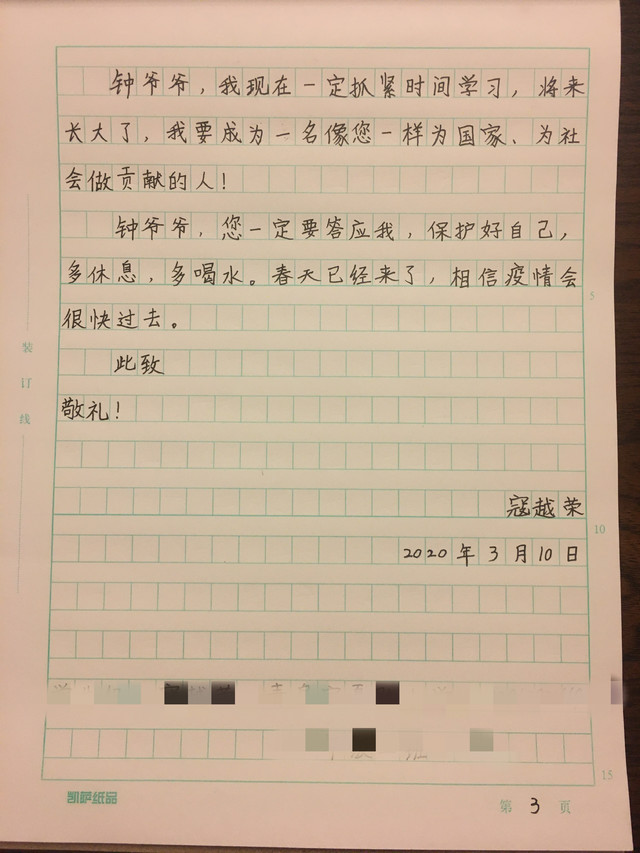 钟爷爷，我现在一定抓紧时间学习，将来
长大了，我要成为一名像您一样为国家、为社
会做贡献的人！
钟爷爷，您一定要答应我，保护好自己，
多休息，多喝水。春天已经来了，相信疫情会
5
很快过去。
此致
敬礼！
寇越荣
10
2020年3月10日
装订线
15
凯萨纸品
第 3 页